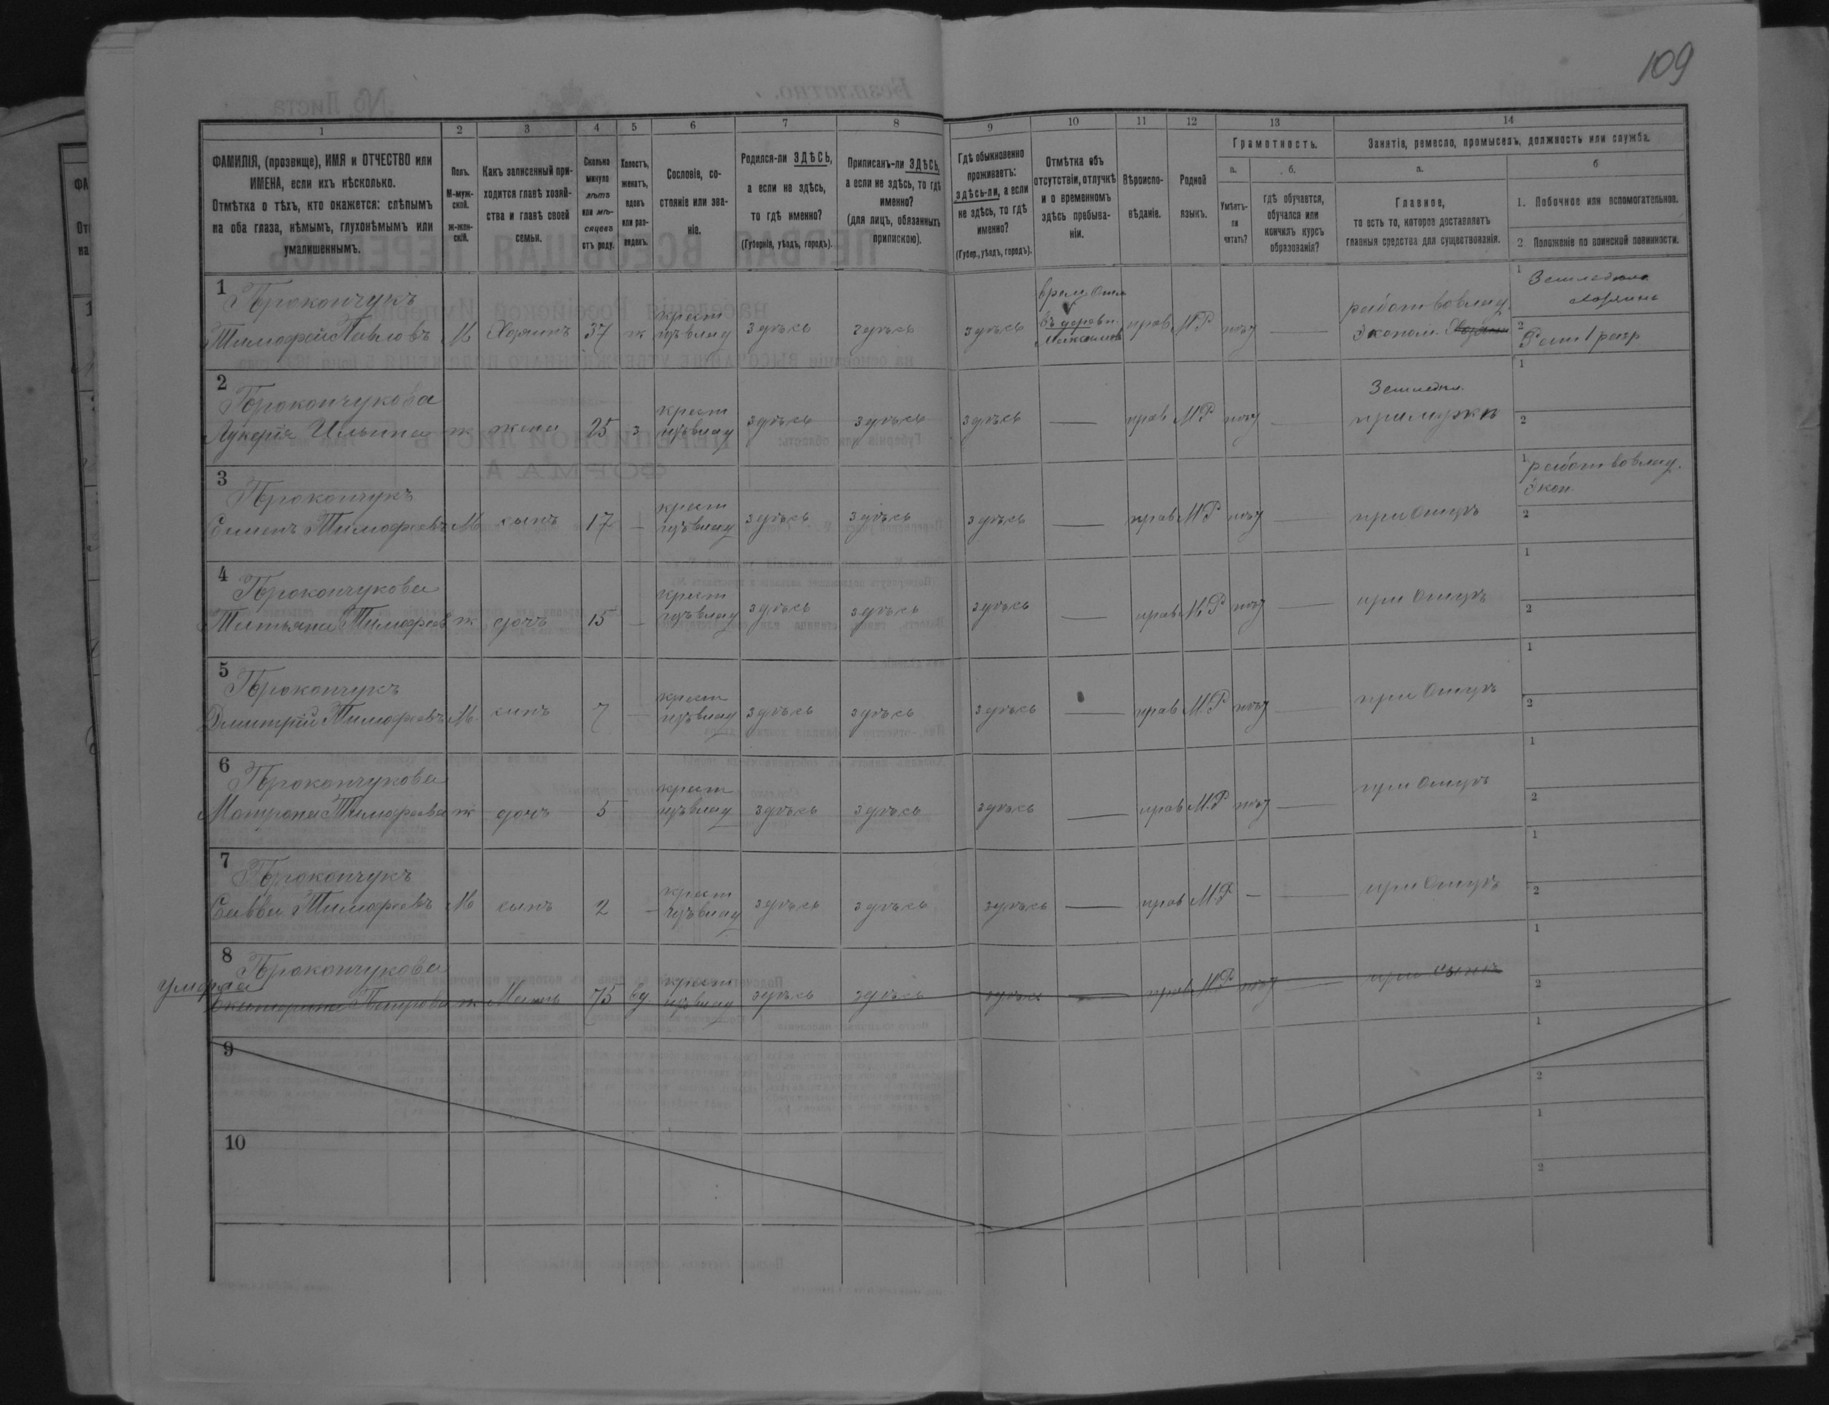 109
1 2 3 4 5 6 7 8 9 10 11 12 13 14
ФАМИЛІЯ, (прозвище), ИМЯ и ОТЧЕСТВО или
ИМЕНА, если ихъ нѣсколько.
Отмѣтка о тѣхъ, кто окажется: слѣпымъ
на оба глаза, нѣмымъ, глухонѣмымъ или
умалишеннымъ.
Полъ.
М-муж-
ской.
ж-жен-
скій.
Какъ записанный при-
ходится главѣ хозяй-
ства и главѣ своей
семьи.
Сколько
минуло
лѣтъ
или мѣ-
сяцевъ
отъ роду.
Холостъ,
женатъ,
вдовъ
или раз-
веденъ.
Сословіе, со-
стояніе или зва-
ніе.
Родился-ли ЗДѢСЬ,
а если не здѣсь,
то гдѣ именно?
(Губернія, уѣздъ, городъ).
Приписанъ-ли ЗДѢСЬ,
а если не здѣсь, то гдѣ
именно?
(для лицъ, обязанныхъ
припискою).
Гдѣ обыкновенно
проживаетъ:
здѣсь-ли, а если
не здѣсь, то гдѣ
именно?
(Губер., уѣздъ, городъ).
Отмѣтка объ
отсутствіи, отлучкѣ
и о временномъ
здѣсь пребыва-
ніи.
Вѣроиспо-
вѣданіе.
Родной
языкъ.
Грамотность.
а.
Умѣетъ-
ли
читать?
б.
гдѣ обучается,
обучался или
кончилъ курсъ
образованія?
Занятіе, ремесло, промыселъ, должность или служба.
а.
Главное,
то есть то, которое доставляетъ
главныя средства для существованія.
б
1. Побочное или вспомогательное.
2. Положеніе по воинской повинности.
1 Прокопчукъ
Тимофей Павловъ М Хозяинъ 37 ж крест изъ влад здѣсь здѣсь здѣсь
въ деревн. прав М Р нѣтъ — работ во влад.
эконом.
1 Земледѣл
2
2 Прокопчукова
Лукерія Ильина ж жена 25 з крест изъ влад здѣсь здѣсь здѣсь — прав М Р нѣтъ — Земледѣл.
при мужѣ
1
2
3 Прокопчукъ
Тимофеевъ М сынъ 17 — крест изъ влад здѣсь здѣсь здѣсь — прав М Р нѣтъ — при Отцѣ
1 работ во влад.
экон.
2
4 Прокопчукова
Татьяна Тимофеев ж дочь 15 — крест изъ влад здѣсь здѣсь здѣсь — прав М Р нѣтъ — при Отцѣ
1
2
5 Прокопчукъ
Дмитрій Тимофеевъ М сынъ 7 — крест изъ влад здѣсь здѣсь здѣсь — прав М Р нѣтъ — при Отцѣ
1
2
6 Прокопчукова
Матрона Тимофеева ж дочь 5 крест изъ влад здѣсь здѣсь здѣсь — прав М Р нѣтъ — при Отцѣ
1
2
7 Прокопчукъ
Савва Тимофеевъ М сынъ 2 — крест изъ влад здѣсь здѣсь здѣсь — прав М Р — — при Отцѣ
1
2
8 Прокопчукова
умерла
Екатерина Петрова ж Мать 75 вд крест изъ влад здѣсь здѣсь здѣсь — прав М Р нѣтъ — при сынѣ
1
2
9
1
2
10
1
2